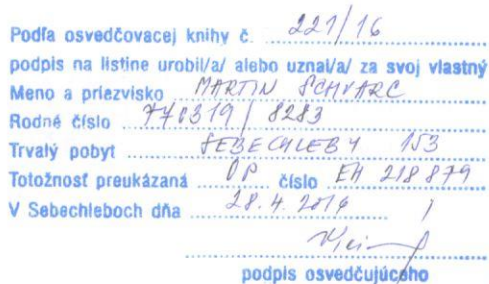 Podľa osvedčovacej knihy č. 221/16
podpis na listine urobil/a/ alebo uznal/a/ za svoj vlastný
Meno a priezvisko MARTIN SCHVARC
Rodné číslo 770319 / 8283
Trvalý pobyt SEBECHLEBY 153
Totožnosť preukázaná OP číslo EH 218 879
V Sebechleboch dňa 28.4.2016
podpis osvedčujúceho